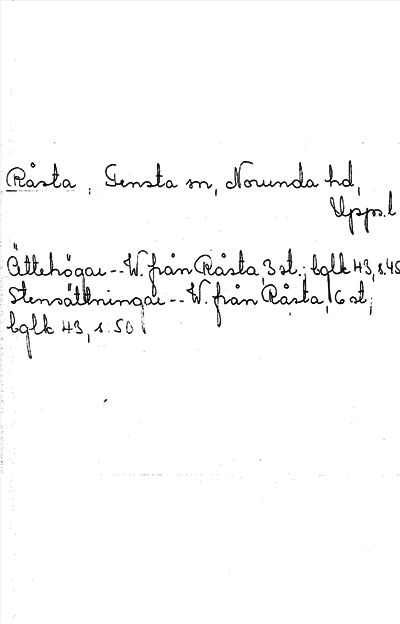 Råsta, Tensta sn, Norunda hd,
Upps.l
Ättehögar -- W. från Råsta, 3 st.; bglk 43, s.45
Stensättningar -- W. från Råsta, 6 st;
bglk 43, s. 50